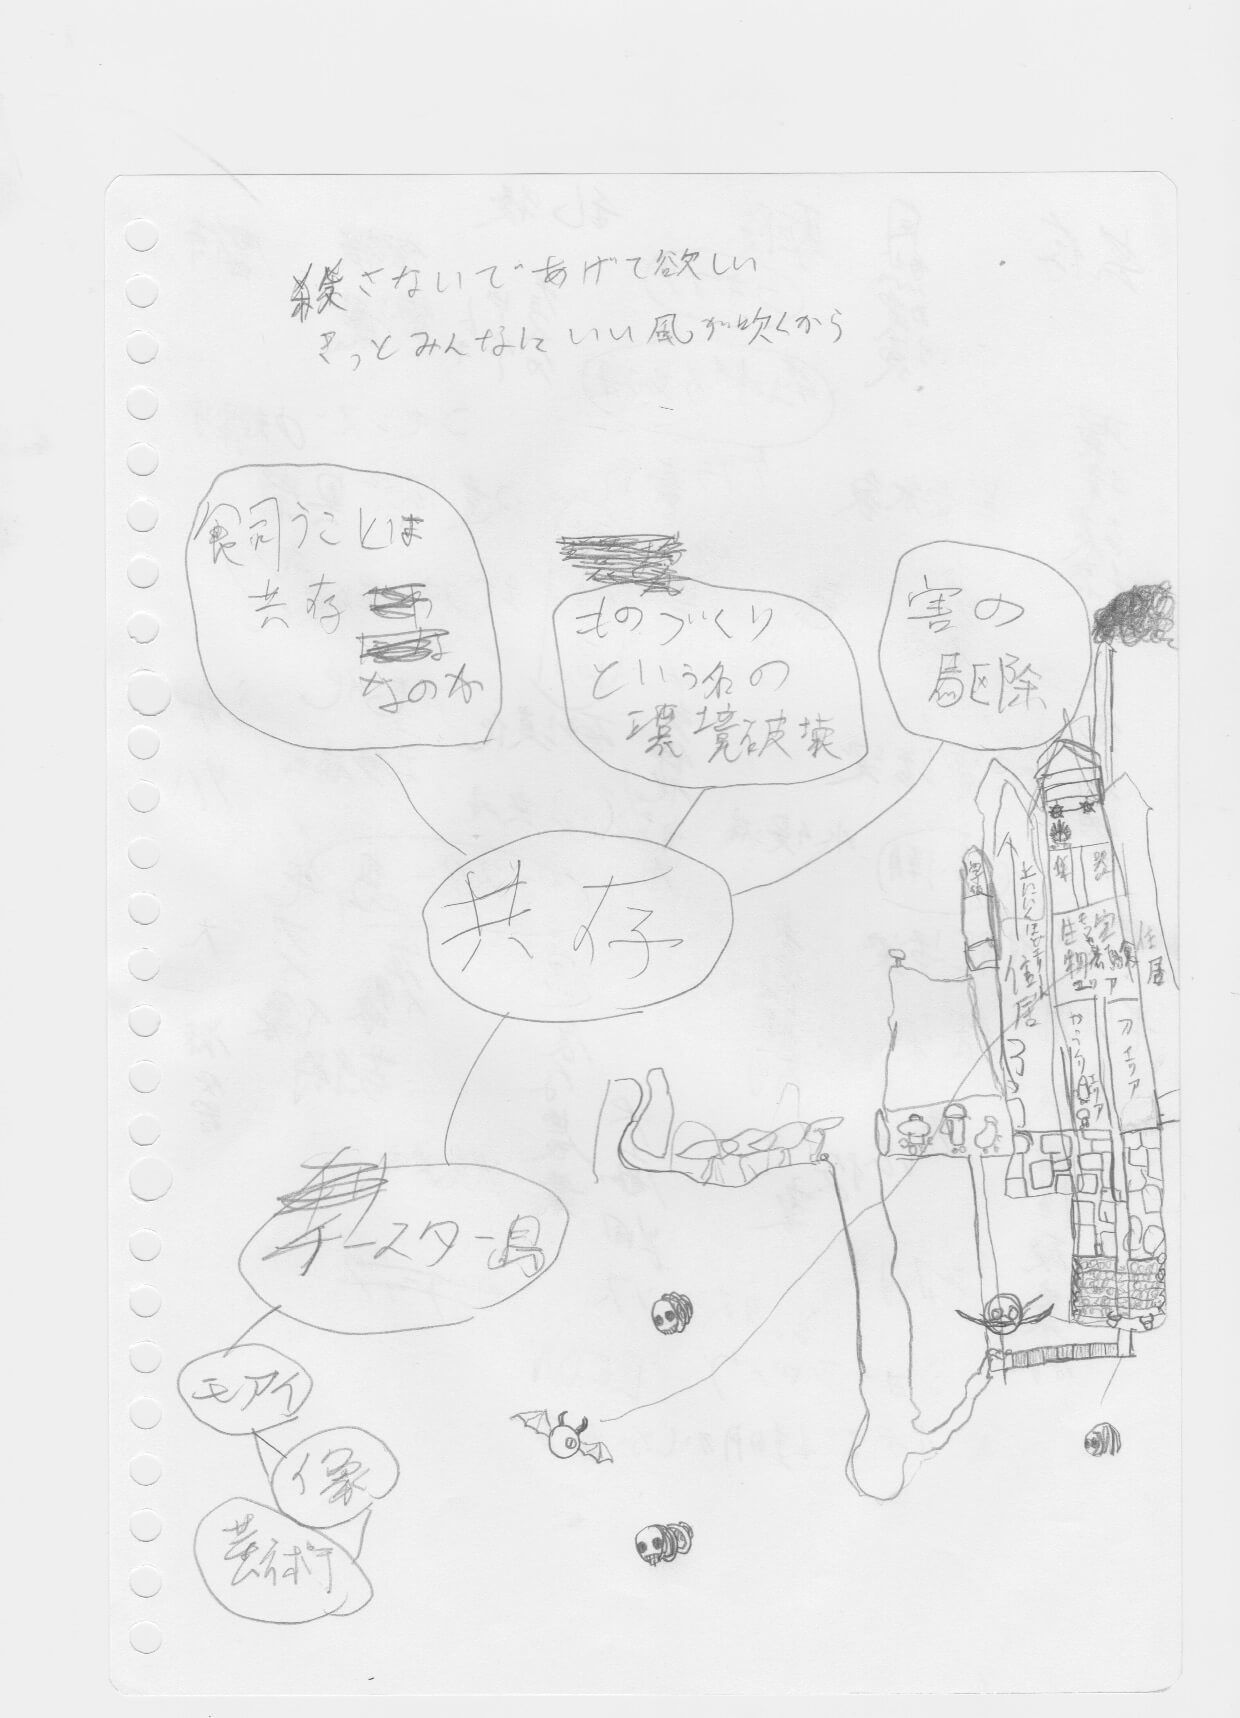 殺さないであげて欲しい
きっとみんなにいい風が吹くから
飼うことは
共存
なのか
ものづくり
という名の
環境破壊
害の
駆除
共存
チースター島
モアイ
像
芸術
住居
生物
エリア
実験
住居
エリア